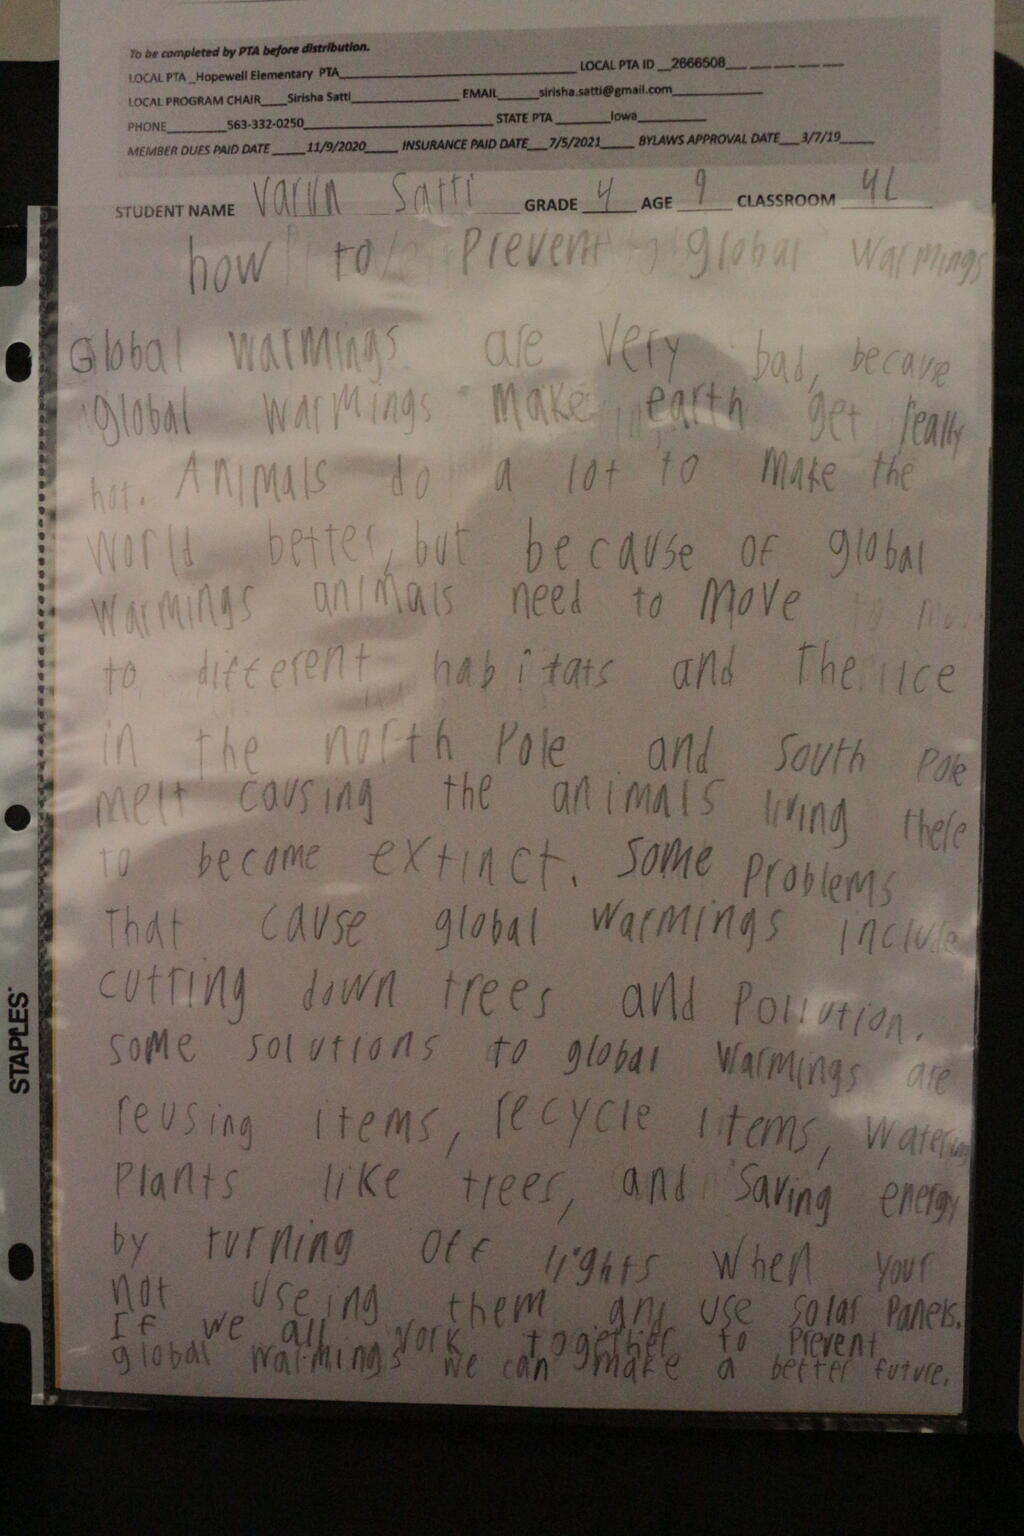 To be completed by PTA before distribution.
LOCAL PTA _Hopewell Elementary PTA____ LOCAL PTA ID __2666508___ ___ ___ ___ ___
LOCAL PROGRAM CHAIR____Sirisha Satti____ EMAIL______sirisha.satti@gmail.com____
PHONE____563-332-0250____ STATE PTA ____Iowa____
MEMBER DUES PAID DATE ____11/9/2020____ INSURANCE PAID DATE___7/5/2021____ BYLAWS APPROVAL DATE___3/7/19____
STUDENT NAME Varun Satti GRADE 4 AGE 9 CLASSROOM 4L
how to Prevent global warmings
Global warmings are very bad, because
global warmings make earth get really
hot. Animals do a lot to make the
world better, but because of global
warmings animals need to move
to different habitats and the ice
in the north Pole and south Pole
melt causing the animals living there
to become extinct. Some Problems
that cause global warmings include
cutting down trees and Pollution.
some solutions to global warmings are
reusing items, recycle items, watering
Plants like trees, and Saving energy
by turning off lights when your
not useing them and use solar Panels.
If we all work together to Prevent
global warmings we can make a better future.
STAPLES